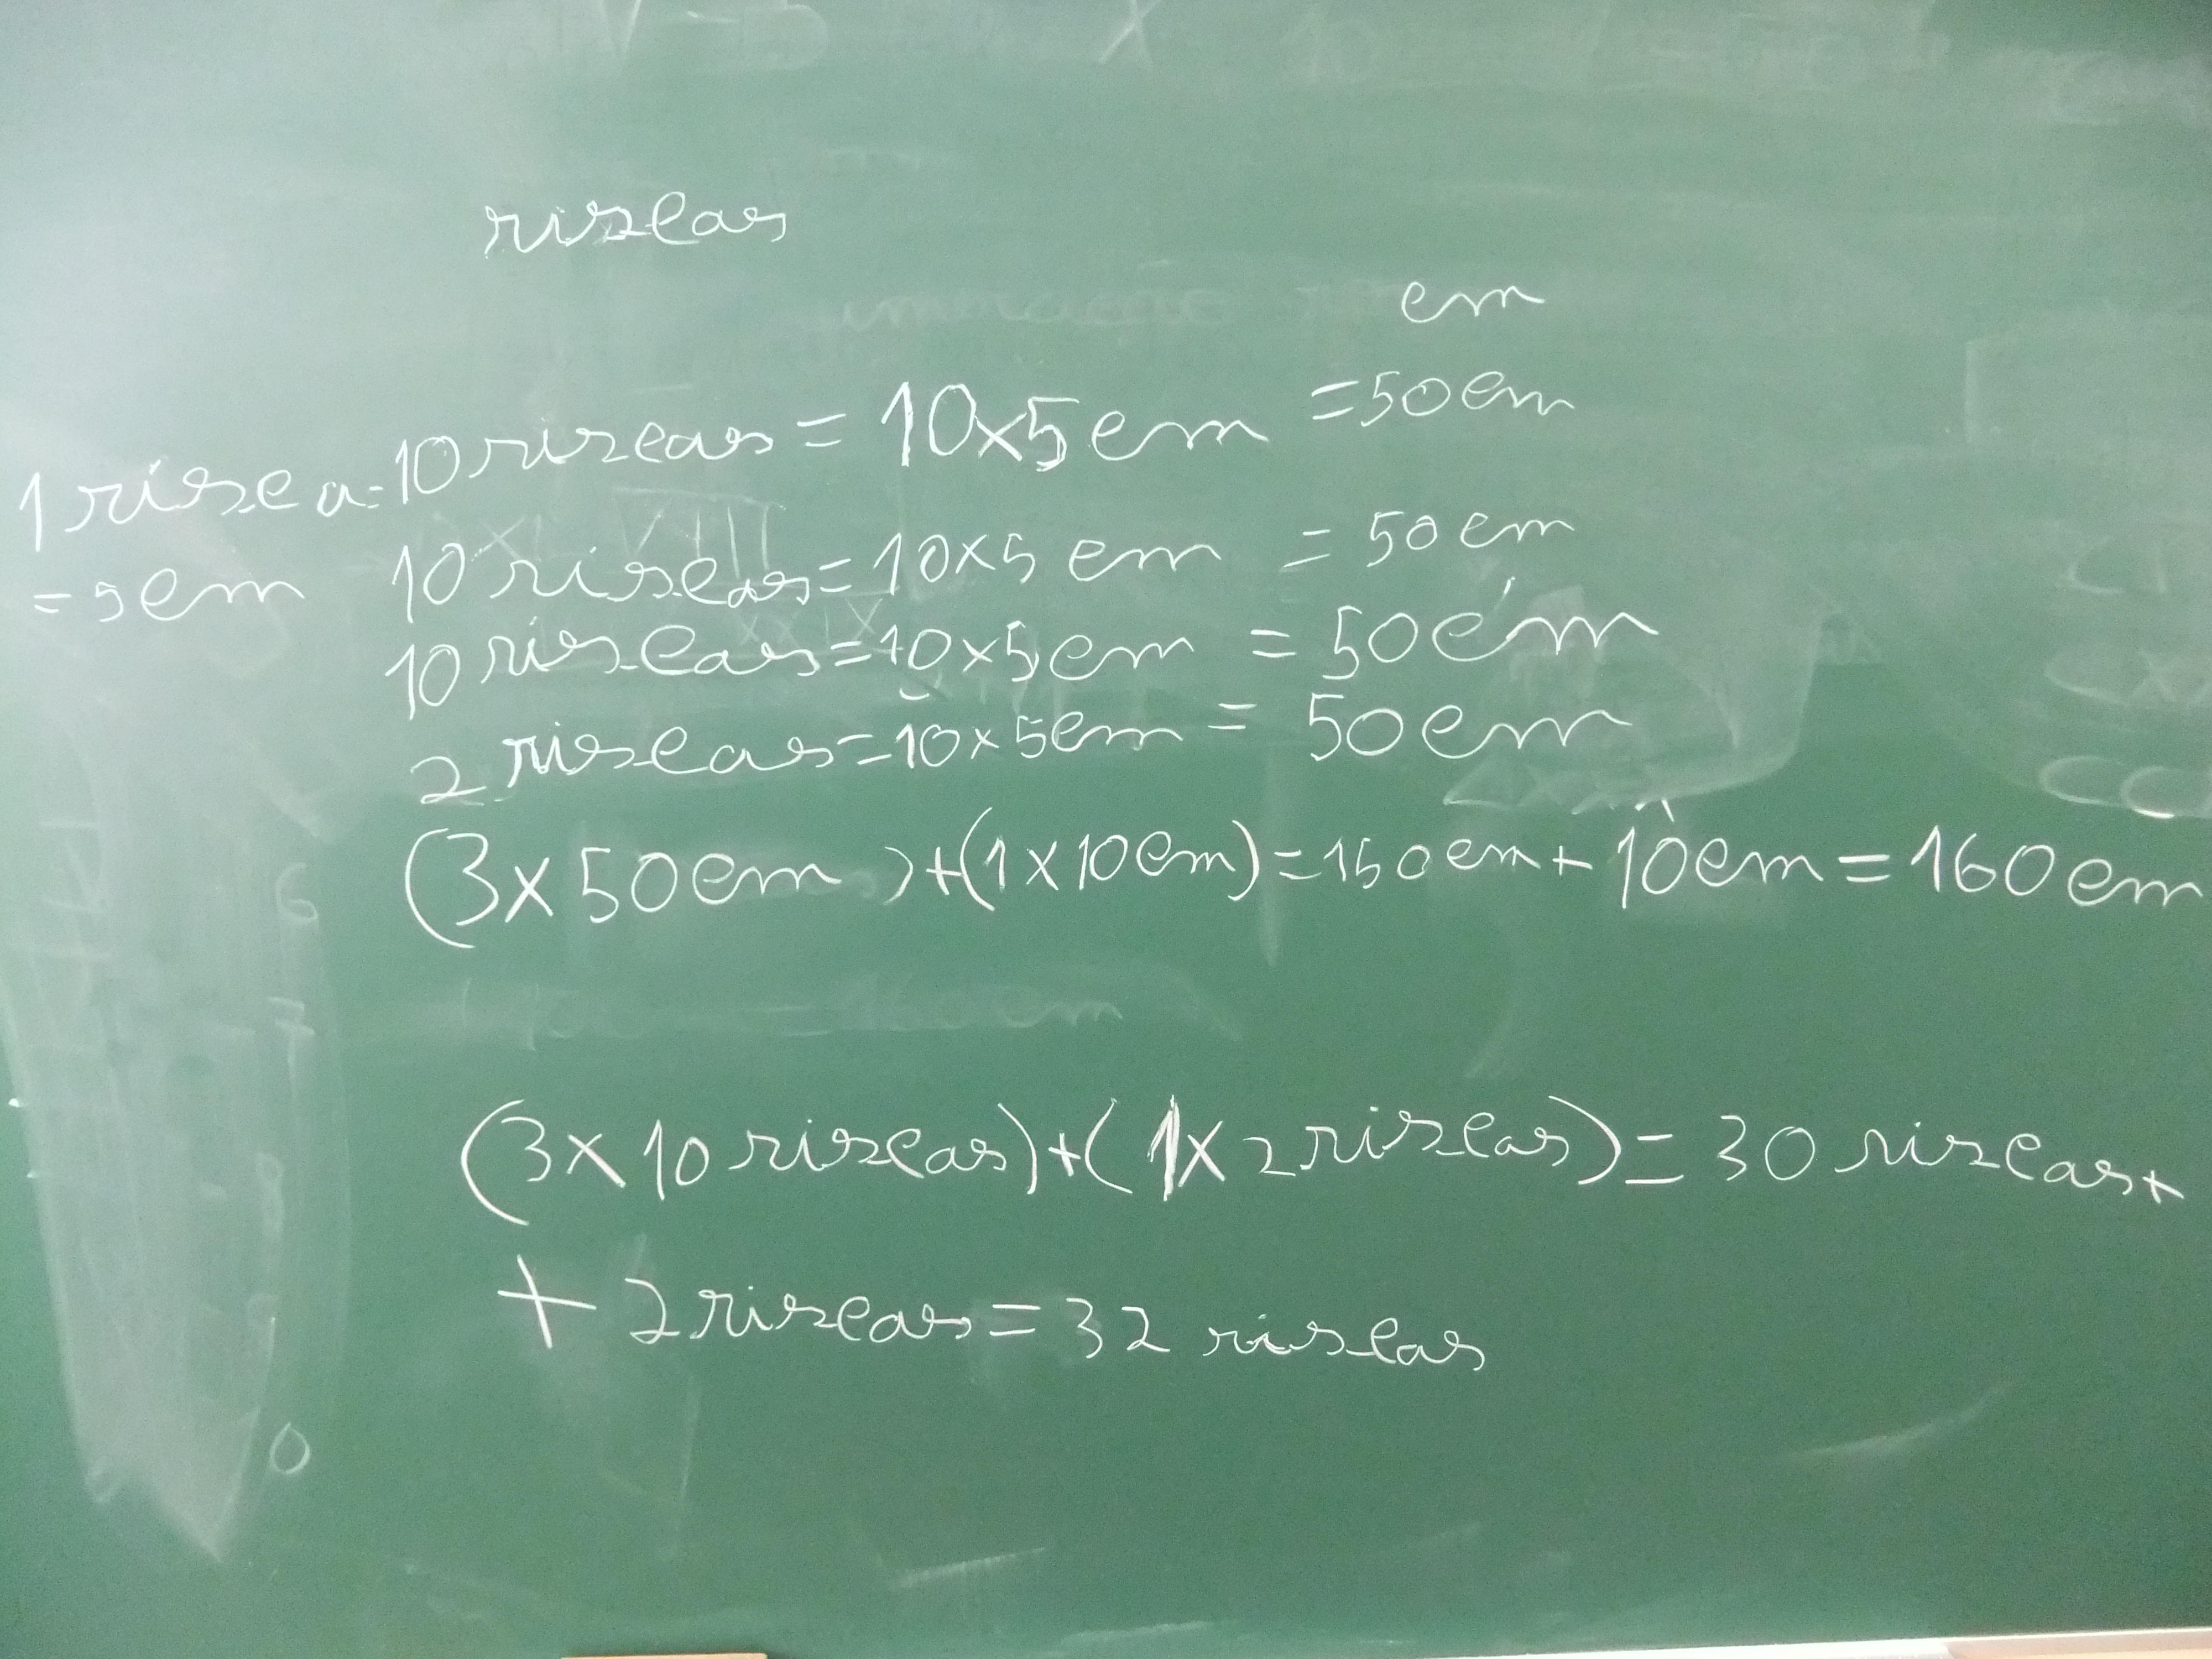 riscas
cm
1 risca = 10 riscas = 10x5cm = 50cm
= 5cm 10 riscas = 10x5 cm = 50cm
10 riscas = 10x5cm = 50cm
2 riscas = 10x5cm = 50cm
(3x50cm)+(1x10cm)=150cm+10cm=160cm
(3x10 riscas)+(1x2riscas)=30 riscas+
+ 2 riscas = 32 riscas
6
7
0